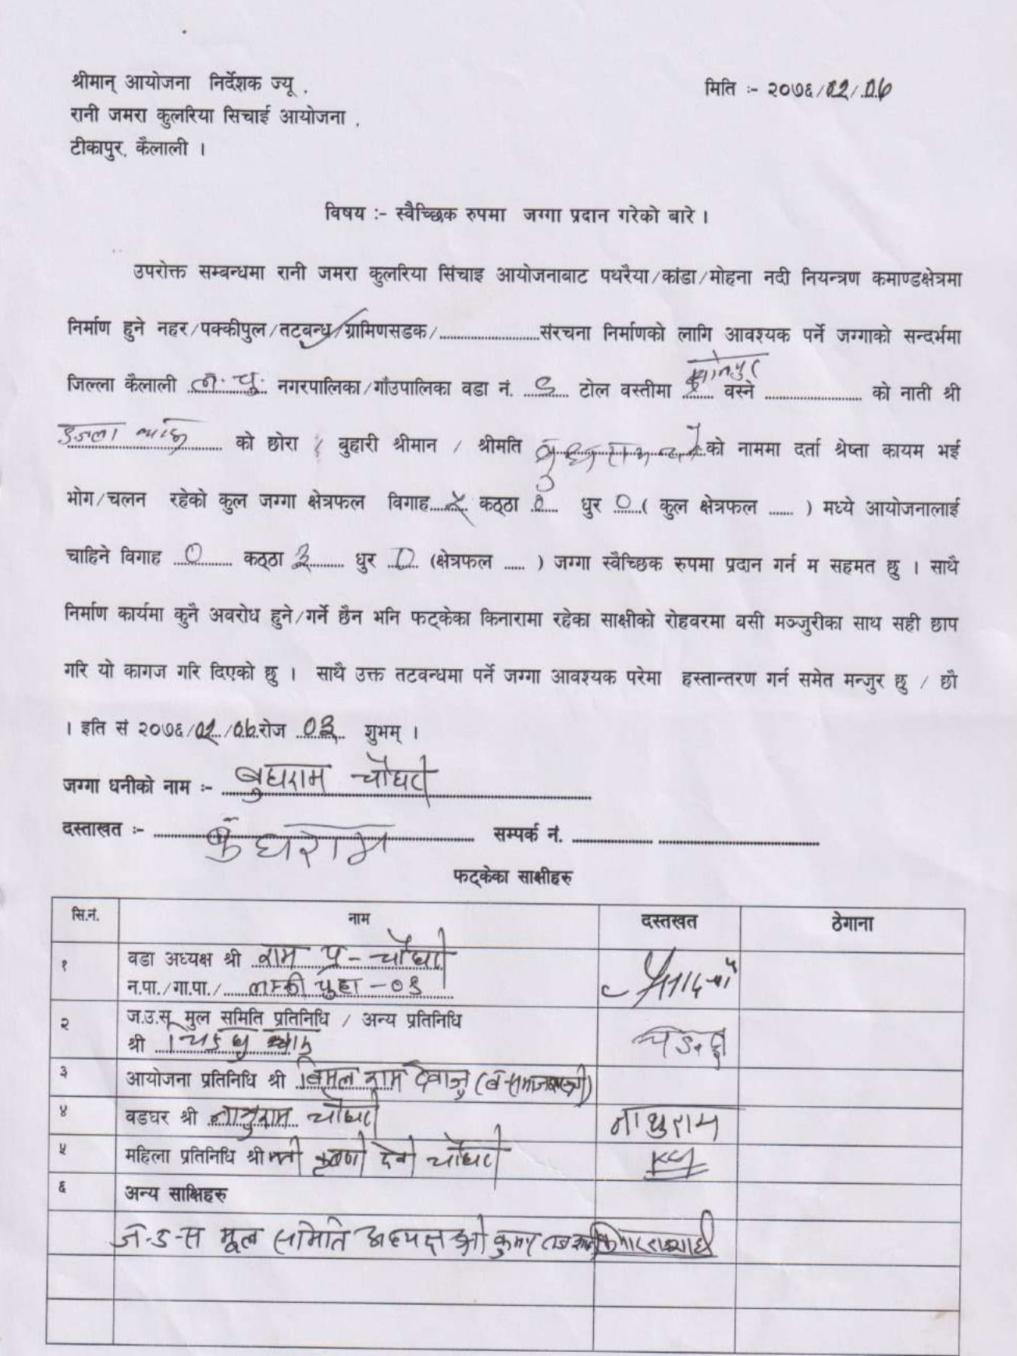 श्रीमान् आयोजना निर्देशक ज्यू .
मिति :- २०७६/02/06
रानी जमरा कुलरिया सिचाई आयोजना .
टीकापुर, कैलाली ।
विषय :- स्वैच्छिक रुपमा जग्गा प्रदान गरेको बारे ।
उपरोक्त सम्बन्धमा रानी जमरा कुलरिया सिंचाइ आयोजनाबाट पथरैया/कांडा/मोहना नदी नियन्त्रण कमाण्डक्षेत्रमा
निर्माण हुने नहर/पक्कीपुल/तटबन्ध/ग्रामिणसडक/..............................संरचना निर्माणको लागि आवश्यक पर्ने जग्गाको सन्दर्भमा
जिल्ला कैलाली ल. चु. नगरपालिका/गाँउपालिका वडा नं. टोल वस्तीमा वस्ने ........................ को नाती श्री
को छोरा / बुहारी श्रीमान / श्रीमति को नाममा दर्ता श्रेष्ता कायम भई
भोग/चलन रहेको कुल जग्गा क्षेत्रफल विगाह कठ्ठा 0 धुर 0 ( कुल क्षेत्रफल ...... ) मध्ये आयोजनालाई
चाहिने विगाह 0 कठ्ठा 3 धुर 0 (क्षेत्रफल ...... ) जग्गा स्वैच्छिक रुपमा प्रदान गर्न म सहमत छु । साथै
निर्माण कार्यमा कुनै अवरोध हुने/गर्ने छैन भनि फट्केका किनारामा रहेका साक्षीको रोहवरमा बसी मञ्जुरीका साथ सही छाप
गरि यो कागज गरि दिएको छु । साथै उक्त तटवन्धमा पर्ने जग्गा आवश्यक परेमा हस्तान्तरण गर्न समेत मन्जुर छु / छौ
। इति सं २०७६/02/06 रोज 03 शुभम् ।
जग्गा धनीको नाम :- बुधराम चौधरी
दस्ताखत :- बुधराम सम्पर्क नं. ....................
फट्केका साक्षीहरु
सि.नं. नाम दस्तखत ठेगाना
१ वडा अध्यक्ष श्री राम प्र- चौधरी
न.पा./गा.पा./ लम्की चुहा -०९
२ ज.उ.सू मुल समिति प्रतिनिधि / अन्य प्रतिनिधि
श्री
३ आयोजना प्रतिनिधि श्री विमल राम
४ वडघर श्री नाथुराम चौधरी नाथुराम
५ महिला प्रतिनिधि श्री कृष्णा देवी चौधरी
६ अन्य साक्षिहरु
ज-उ-स मूल समिति अध्यक्ष श्री